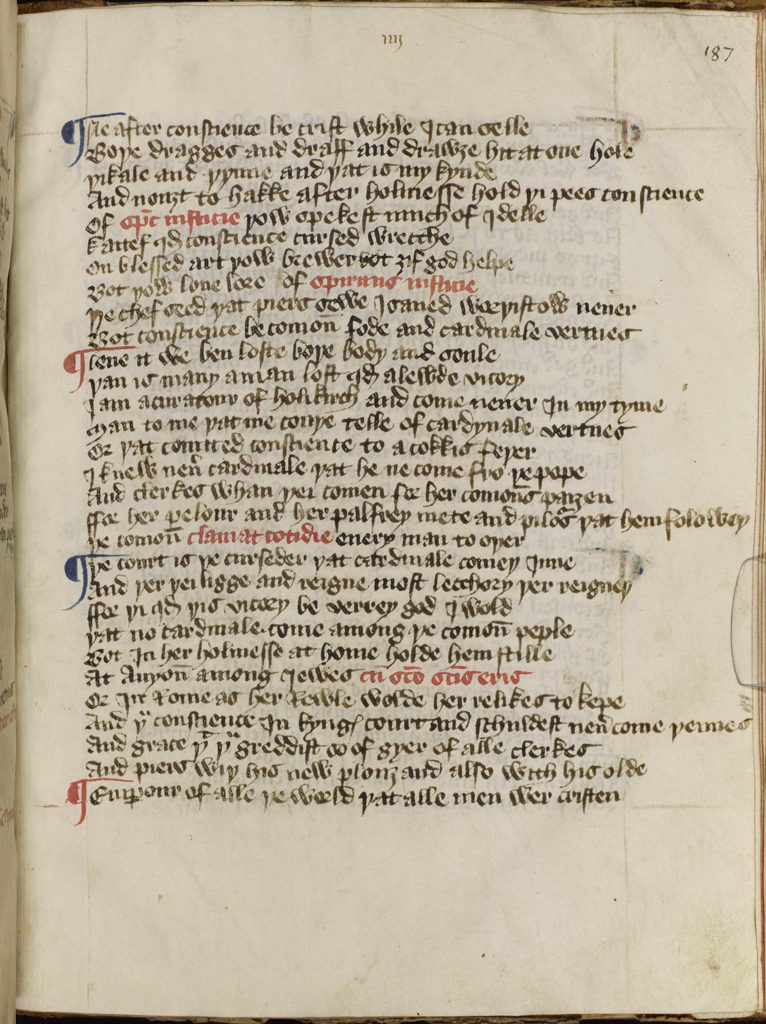 iiij
187
Ne after conscience be crist while I can selle
Boþe dragges and draff and drawȝe hit at one hole
þikale and þynne and þat is my kynde
And nouȝt to hakke after holinesse hold þi pees conscience
Of spc iusticie þow spekest much of Idelle
Kaitef qd conscience cursed wrecche
On blessed art þow brewer bot ȝif god helpe
Bot þow lone lore of spiritus iusticie
þe chef seed þat piers sewe I saued worþistow neuer
Bot conscience be comon fode and cardinale vertues
leue it we ben loste boþe body and soule
þan is many a man lost qd a lewde vicory
I am a curatour of holikirch and come neuer In my tyme
Man to me þat me couþe telle of cardynale vertues
Or þat counted conscience to a cokkis feþer
I knew neu cardinale þat he ne come fro þe pope
And clerkes whan þei comen for her comons paȝen
ffor her pelour and her palfrey mete and pilours þat hem folowey
þe comoun clamat cotidie euery man to oþer
þe court is þe curseder þat cardinale comeþ Inne
And þer þei ligge and reigne most lecchory þer reigneþ
ffor þi qd þis vicory be verrey god I wold
þat no cardinale come among þe comoun peple
Bot In her holinesse at home holde hem stille
At Auyoun among Iewes cu sco scus eris
Or In Rome as her Rewle wolde her relikes to kepe
And þu conscience In kyngs court and schuldest neu come þennes
And grace þt þu greddist so of gyer of alle clerkes
And piers wiþ his new plouȝ and also with his olde
Emperour of alle þe world þat alle men wer cristen